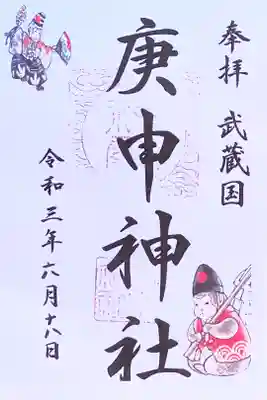 奉拝 武蔵国
庚申神社
令和三年六月十八日